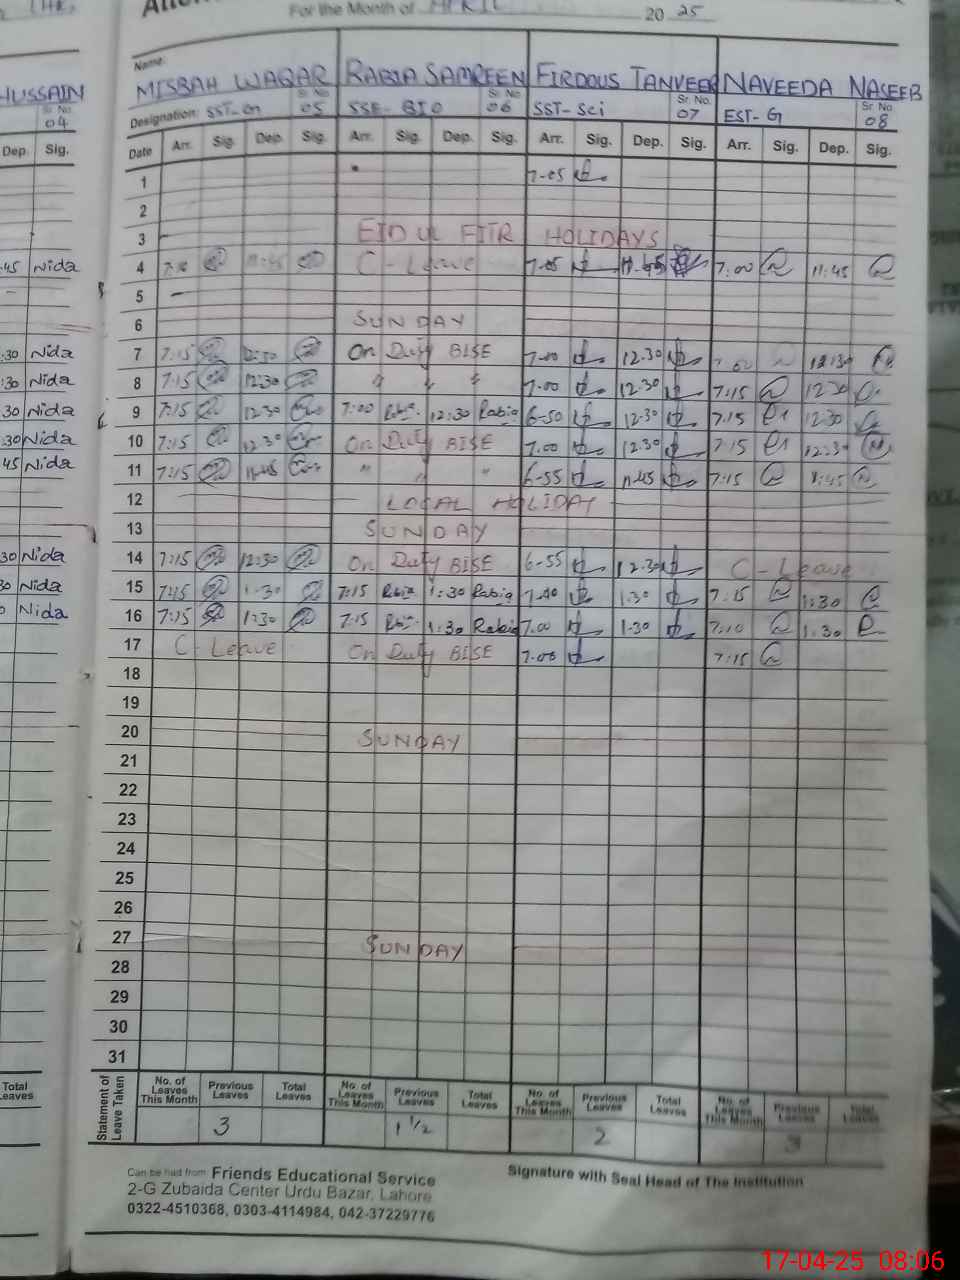 For the Month of APRIL 20 25
Name:
HUSSAIN MISBAH WAQAR RABIA SAMREEN FIRDOUS TANVEER NAVEEDA NASEEB
Sr. No. Sr. No. Sr. No. Sr. No.
04 Designation: SST- 05 SSE- BIO 06 SST- Sci 07 EST- G 08
Dep. Sig. Date Arr. Sig. Dep. Sig. Arr. Sig. Dep. Sig. Arr. Sig. Dep. Sig. Arr. Sig. Dep. Sig.
1 7-05
2
3 EID UL FITR HOLIDAYS
:45 Nida 4 11:45 C- Leave 7.05 11.45 7:00 11:45
5
6 SUNDAY
:30 Nida 7 7:15 12:30 On Duty BISE 7.00 12.30 12:30
:30 Nida 8 7:15 12:30 " " " 7.00 12.30 7:15 12:30
:30 Nida 9 7:15 12:30 7:00 Rabia 12:30 Rabia 6-50 12-30 7:15 12:30
:30 Nida 10 7:15 12:30 On Duty BISE 7.00 12.30 7:15 12:30
:45 Nida 11 7:15 11:45 " " " 6-55 11.45 7:15 11:45
12 LOCAL HOLIDAY
13 SUNDAY
:30 Nida 14 7:15 12:30 On Duty BISE 6-55 12.30 C- Leave
:30 Nida 15 7:15 1:30 7:15 Rabia 1:30 Rabia 7.00 1.30 7:15 1:30
Nida 16 7:15 1:30 7:15 Rabia 1:30 Rabia 7.00 1.30 7:10 1:30
17 C- Leave On Duty BISE 7.00 7:15
18
19
20 SUNDAY
21
22
23
24
25
26
27 SUNDAY
28
29
30
31
Total Leaves Statement of Leave Taken No. of Leaves This Month Previous Leaves Total Leaves No. of Leaves This Month Previous Leaves Total Leaves No. of Leaves This Month Previous Leaves Total Leaves No. of Leaves This Month Previous Leaves Total Leaves
3 1 1/2 2 3
Can be had from: Friends Educational Service Signature with Seal Head of The Institution
2-G Zubaida Center Urdu Bazar, Lahore
0322-4510368, 0303-4114984, 042-37229776
17-04-25 08:06